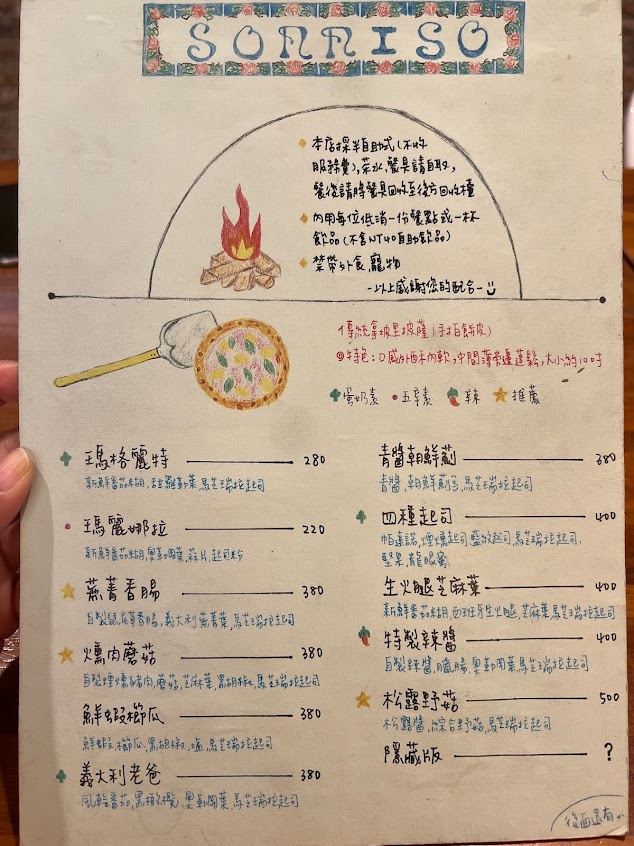 SONNISO
本店採半自助式(不收
服務費),茶水、餐具請自取,
餐後請將餐具回收至後方回收檯
內用每位低消一份餐點或一杯
飲品(不含NT40自助飲品)
禁帶外食、寵物
-以上感謝您的配合-
傳統拿坡里披薩(手拍餅皮)
特色:口感外酥內軟,中間薄旁邊蓬鬆,大小約10吋
蛋奶素 五辛素 辣 推薦
瑪格麗特 280
新鮮番茄糊、甜羅勒葉、馬芝瑞拉起司
瑪麗娜拉 220
新鮮番茄糊、奧勒岡葉、蒜片、起司粉
蕪菁香腸 380
自製鼠尾草香腸、義大利蕪菁葉、馬芝瑞拉起司
燻肉蘑菇 380
自製煙燻豬肉、蘑菇、芝麻葉、黑胡椒、馬芝瑞拉起司
鮮蝦櫛瓜 380
鮮蝦、櫛瓜、黑胡椒、鹽、馬芝瑞拉起司
義大利老爸 380
風乾番茄、黑橄欖、奧勒岡葉、馬芝瑞拉起司
青醬朝鮮薊 380
青醬、朝鮮薊、馬芝瑞拉起司
四種起司 400
帕達諾、煙燻起司、藍紋起司、馬芝瑞拉起司、
堅果、龍眼蜜
生火腿芝麻葉 400
新鮮番茄糊、西班牙生火腿、芝麻葉、馬芝瑞拉起司
特製辣醬 400
自製辣醬、臘腸、奧勒岡葉、馬芝瑞拉起司
松露野菇 500
松露醬、綜合野菇、馬芝瑞拉起司
隱藏版 ?
後面還有